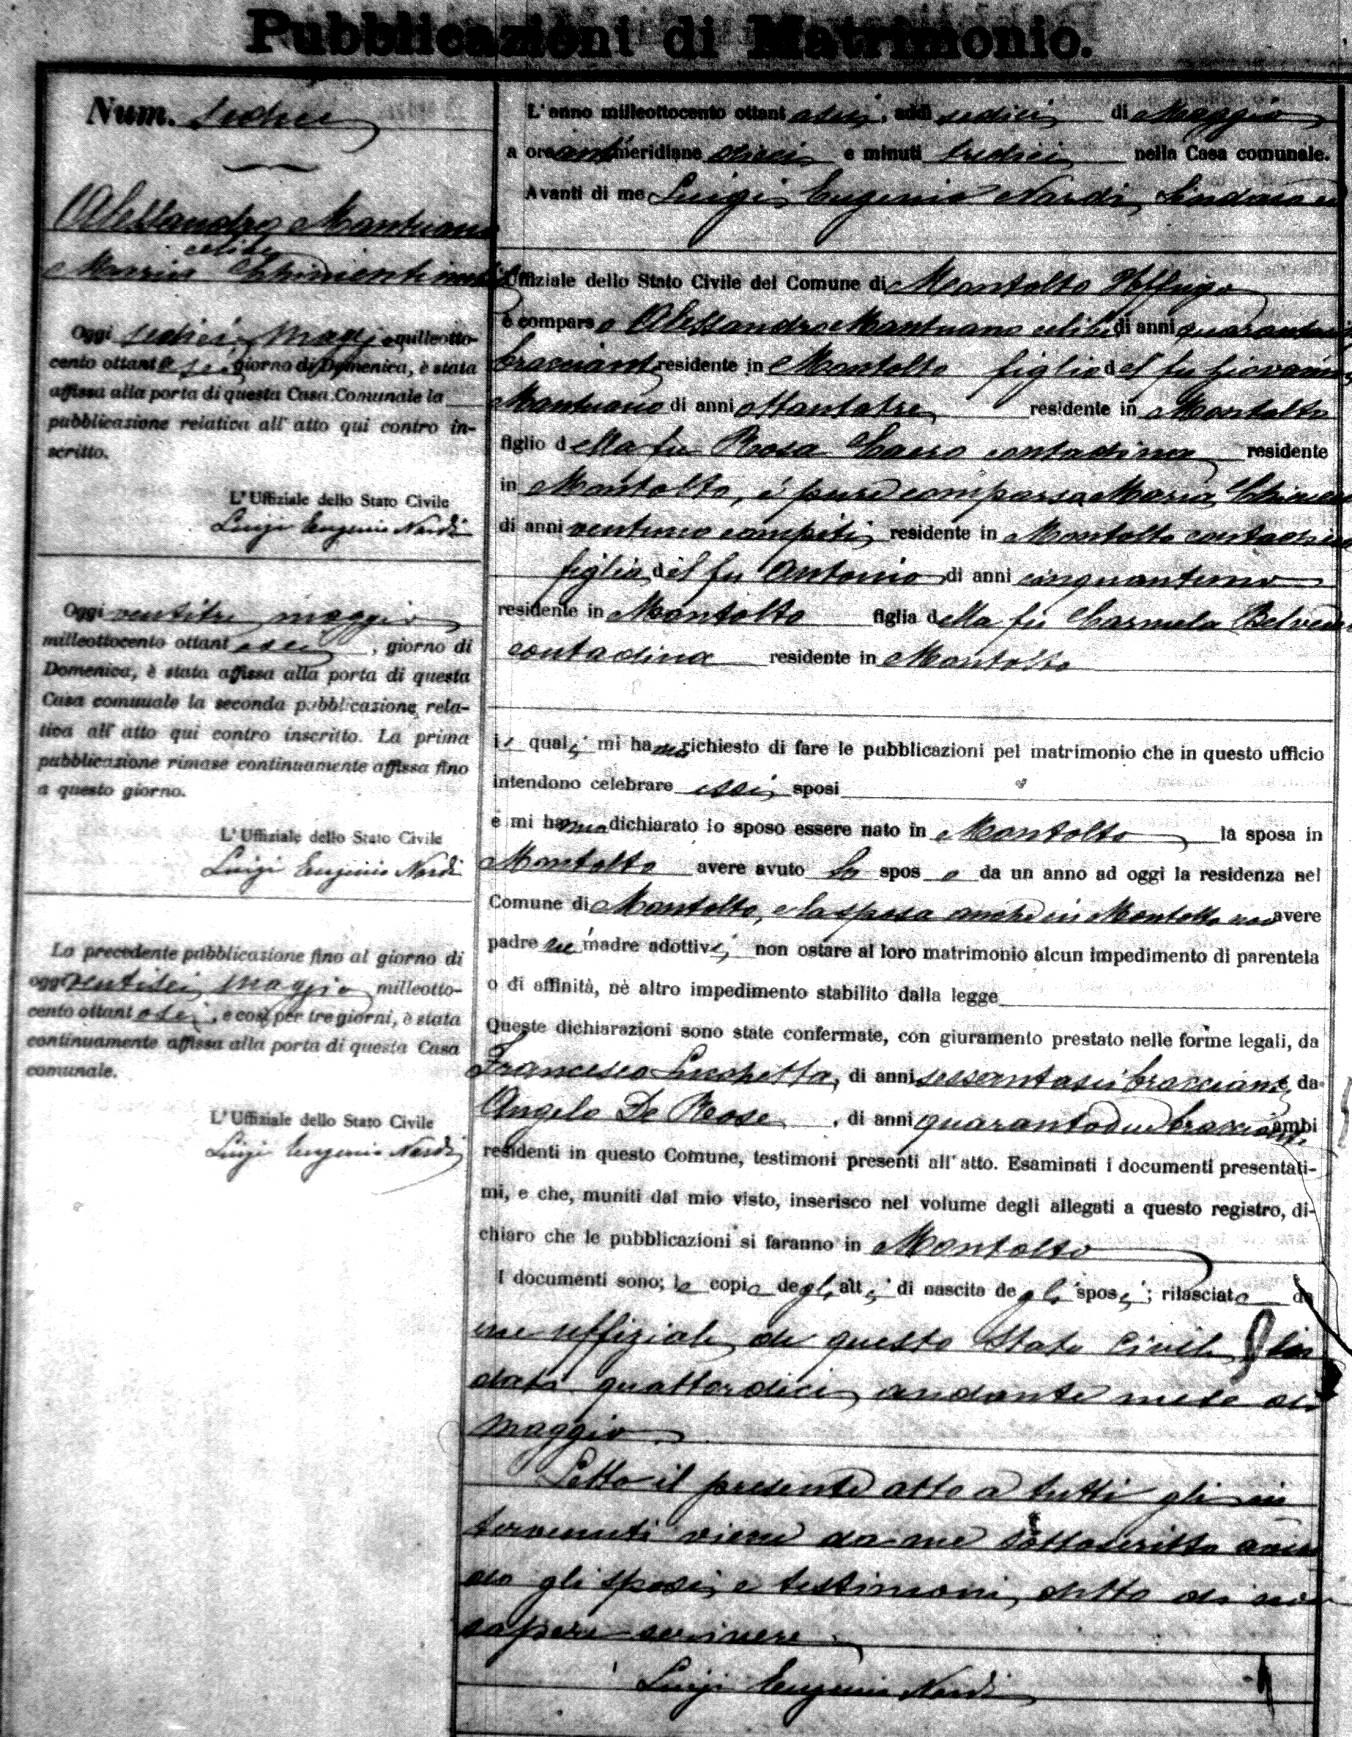 Pubblicazioni di Matrimonio.
Num. sedici
Alessandro Mantuano
celibe
Maria Chimenti nubile
Oggi sedici Maggio milleotto-
cento ottantasei giorno di Domenica, è stata
affissa alla porta di questa Casa Comunale la
pubblicazione relativa all' atto qui contro in-
scritto.
L' Uffiziale dello Stato Civile
Luigi Eugenio Nardi
Oggi ventitre maggio
milleottocento ottantasei, giorno di
Domenica, è stata affissa alla porta di questa
Casa comunale la seconda pubblicazione rela-
tiva all' atto qui contro inscritto. La prima
pubblicazione rimase continuamente affissa fino
a questo giorno.
L' Uffiziale dello Stato Civile
Luigi Eugenio Nardi
La precedente pubblicazione fino al giorno di
oggi ventisei maggio milleotto-
cento ottantasei, e così per tre giorni, è stata
continuamente affissa alla porta di questa Casa
comunale.
L' Uffiziale dello Stato Civile
Luigi Eugenio Nardi
L' anno milleottocento ottantasei, addì sedici di Maggio
a ore antimeridiane dieci e minuti tredici nella Casa comunale.
Avanti di me Luigi Eugenio Nardi Sindaco ed
Uffiziale dello Stato Civile del Comune di Montalto Uffugo
è comparso Alessandro Mantuano celibe di anni
bracciante residente in Montalto figlio del fu Giovanni
Mantuano di anni ottantatre residente in Montalto
figlio della fu Rosa contadina residente
in Montalto, è pure comparsa Maria
di anni ventuno compiti residente in Montalto contadina
figlia del fu Antonio di anni cinquantuno
residente in Montalto figlia della fu Carmela
contadina residente in Montalto
i quali mi hanno richiesto di fare le pubblicazioni pel matrimonio che in questo ufficio
intendono celebrare essi sposi
e mi hanno dichiarato lo sposo essere nato in Montalto la sposa in
Montalto avere avuto lo sposo da un anno ad oggi la residenza nel
Comune di Montalto, e la sposa anche in Montalto non avere
padre nè madre adottivi, non ostare al loro matrimonio alcun impedimento di parentela
o di affinità, nè altro impedimento stabilito dalla legge
Queste dichiarazioni sono state confermate, con giuramento prestato nelle forme legali, da
Francesco Lucchetta, di anni sessantasei bracciante e da
Angelo De Rose, di anni quarantadue bracciante ambi
residenti in questo Comune, testimoni presenti all' atto. Esaminati i documenti presentati-
mi, e che, muniti dal mio visto, inserisco nel volume degli allegati a questo registro, di-
chiaro che le pubblicazioni si faranno in Montalto
I documenti sono; le copie degli atti di nascita degli sposi; rilasciate da
me uffiziale di questo Stato Civile in
data quattordici andante mese di
maggio
Letto il presente atto a tutti gli in
tervenuti viene da me sottoscritto aven
do gli sposi e testimoni detto di non
sapere scrivere
Luigi Eugenio Nardi